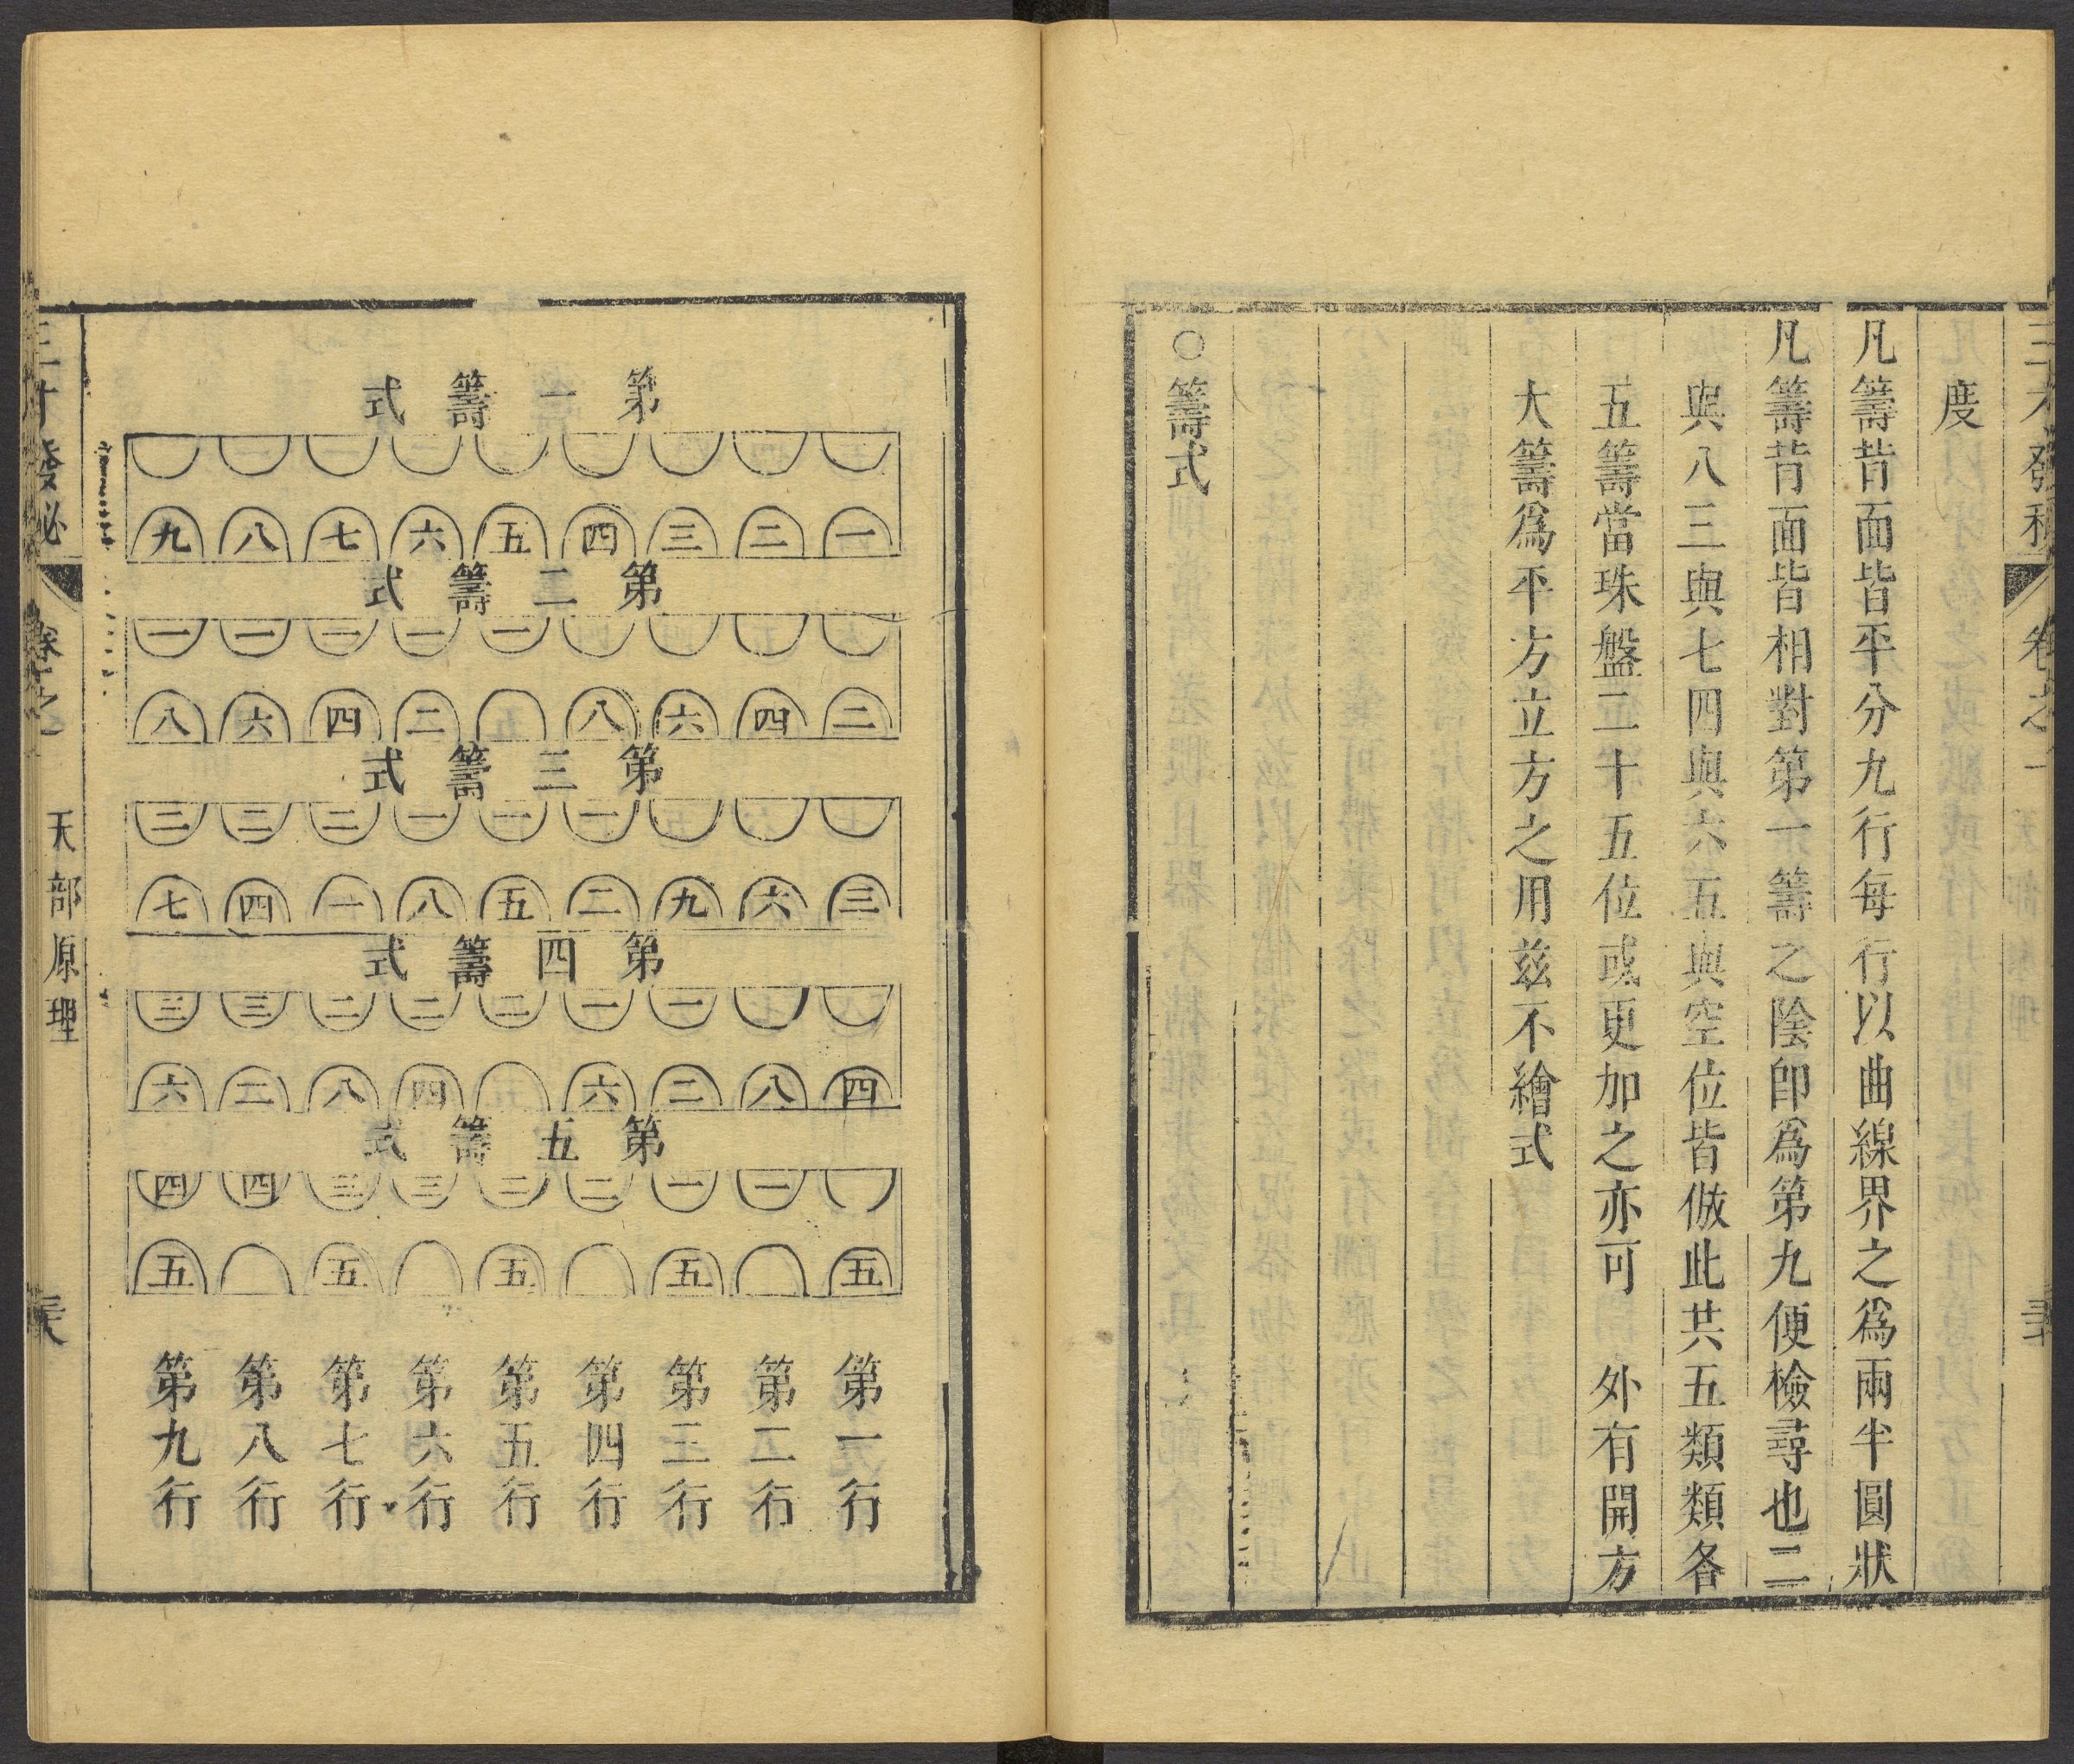 三才發秘 卷之一
度
凡籌背面皆平分九行每行以曲線界之為兩半圓狀
凡籌背面皆相對第一籌之陰卽為第九便檢尋也二
與八三與七四與六五與空位皆倣此共五類類各
五籌當珠盤二十五位或更加之亦可 外有開方
大籌為平方立方之用兹不繪式
○籌式
第一籌式
一 二 三 四 五 六 七 八 九
第二籌式
一 一 一 一 一
二 四 六 八 二 四 六 八
第三籌式
一 一 一 二 二 二
三 六 九 二 五 八 一 四 七
第四籌式
一 一 二 二 二 三 三
四 八 二 六 四 八 二 六
第五籌式
一 一 二 二 三 三 四 四
五 五 五 五 五
第一行
第二行
第三行
第四行
第五行
第六行
第七行
第八行
第九行
三才發秘 卷之一 天部原理